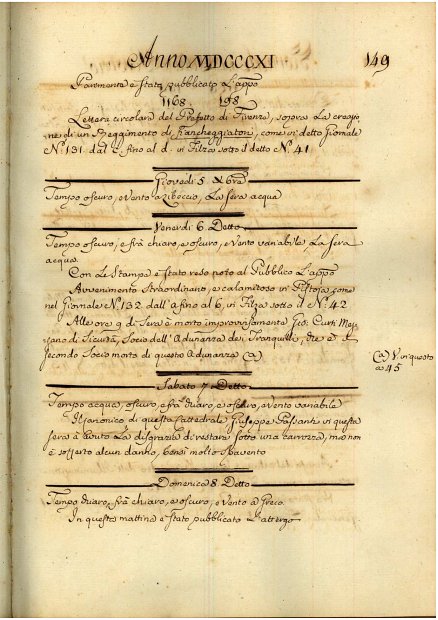 Anno MDCCCXI 149
Parimente è stata pubblicato L'appo
1168 198
Lettera circolare del Prefetto di Firenze, sopra La creazio
ne di un Reggimento di Fiancheggiatori, come in detto Giornale
N. 131 dal c. fino al d. in Filza sotto il detto N. 41
Giovedì 5
Tempo oscuro, e vento a Libeccio, La sera acqua
Venerdì 6. Detto
Tempo oscuro, e frà chiaro, e oscuro, e Vento variabile, La sera
acqua
Con Le Stampe è stato reso noto al Pubblico L'appo
Avvenimento Straordinario, e calamitoso in Pistoja come
nel Giornale N. 132 dall'a fino al 6, in Filza sotto il N. 42
Alle ore 9 di Sera è morto improvvisamente Gio. Curti
di Sicurtà, Socio dell'Adunanza dei Tranquilli, che è il
secondo Socio morto di questa Adunanza (a)
(a) V. in questo
a 45
Sabato 7 Detto
Tempo acqua, oscuro, e frà chiaro, e oscuro, e Vento variabile
Il Canonico di questa Cattedrale Giuseppe Passanti in questa
sera à avuto La disgrazia di restare sotto una carrozza, ma non
à sofferto alcun danno, bensì molto spavento
Domenica 8. Detto
Tempo chiaro, frà chiaro, e oscuro, e Vento a Greco.
In questa mattina è stato pubblicato L'attergo